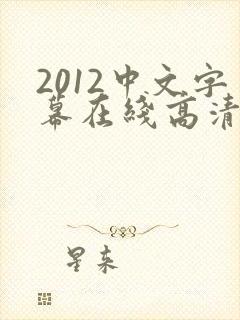 2012中文字
幕在綫高清
星来